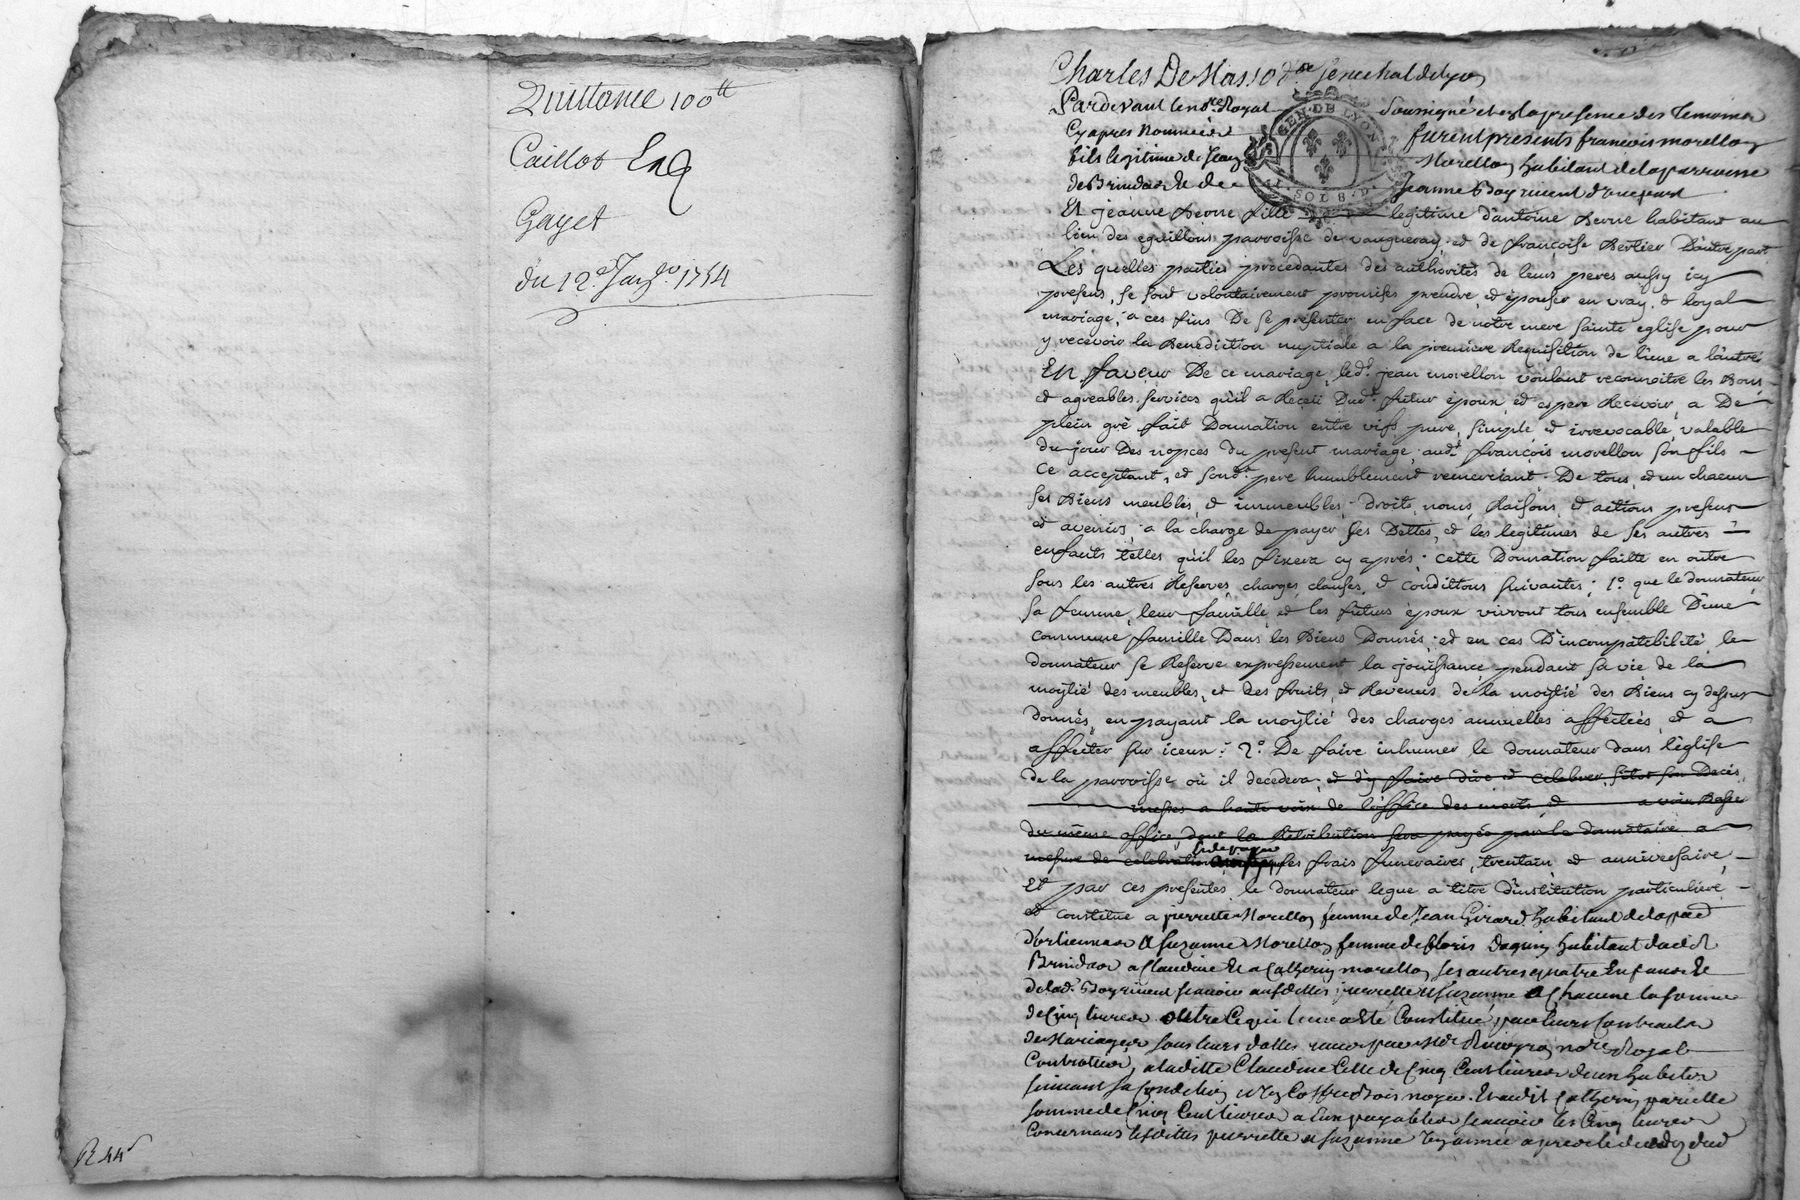 Quittance 100ᵗᵗ
Caillot
Gayet
du 12ᵉ Janᵉʳ 1754
R 44ˢ
Charles De Masso dᵉ senechal de lyon
Pardevant le noʳᵉ Royal soussigné et en la presence des temoins
Cy apres nommés furent presents francois morellon
fils legitime de Jean Morellon habitant de la parroisse
de Brindas et de Jeanne Boyrivent d'une part
GEN. DE LYON
SOLS
Et jeanne Berne fille legitime d'antoine Berne habitant au
lieu des eguillons parroisse de vaugneray et de françoise Berlier D'autre part
Les quelles parties procedantes des authorités de leurs peres aussy icy
presens, se sont volontairement promises prendre et épouser en vray & loyal
mariage, a ces fins De se présenter en face de notre mere sainte eglise pour
y recevoir la Benediction nuptiale a la premiere Requisition de l'une a l'autre
En faveur De ce mariage, ledᵗ jean morellon voulant reconnoitre les Bons
et agreables services qu'il a Reçeü Dudᵗ futur époux et espere Recevoir, a De
plein gré fait Donnation entre vifs pure, simple et irrevocable, valable
du jour Des nopces du present mariage, audᵗ françois morellon son fils
ce acceptant, et sondᵗ pere humblement remerciant. De tous, et un chacun
ses Biens meubles, & immeubles, droits, noms, Raisons, & actions presens
et avenirs, a la charge de payer ses Dettes, et les legitimes de ses autres
enfants telles qu'il les fixera cy aprés; cette Donnation faitte en outre
sous les autres Reserves, charges, clauses, & conditions suivantes; 1º que le donnateur,
sa femme, leur famille, et les futurs époux vivront tous ensemble D'une
commune famille Dans les Biens Donnés; et en cas D'incompatibilité, le
donnateur se Reserve expressement la jouissance pendant sa vie de la
moytié des meubles, et des fruits, et Revenus de la moytié des Biens cy dessus
donnés, en payant la moytié des charges annuelles affectées, et a
affecter sur iceux; 2º De faire inhumer le donnateur dans l'église
de la parroisse où il decedera, et d'y faire dire et celebrer, sitot son Decès,
messes a haute voix de l'office des morts, & a voix Basse
du même office, dont la Retribution sera payée par le donnataire a
mesure de celebration les frais funeraires, trentain, et anniversaire,
Et par ces presentes, le donnateur legue a titre d'institution particuliere
et constitue a pierrette Morellon femme de Jean Girard habitant de la
d'orlienas a Suzanne Morellon femme de habitant dudit
Brindas a Claudine et a Catherin morellon ses autres quatre Enfans et
de ladᵉ Boyrivent scavoir ausdittes pierrette et suzanne a Chacune la somme
de Cinq livres outre ce qui leur a eté Constitué par leurs Contracts
de Mariages sous leurs dattes receus par Mᵉ noʳᵉ Royal
a laditte Claudine Celle de Cinq Cent livres et un habit
suivant sa Condition et un Coffre bois noyer. Et audit Catherin pareille
somme de Cinq Cent livres a Eux payables scavoir les Cinq livres
Concernans lesdittes pierrette et suzanne une année apres le deceds dud